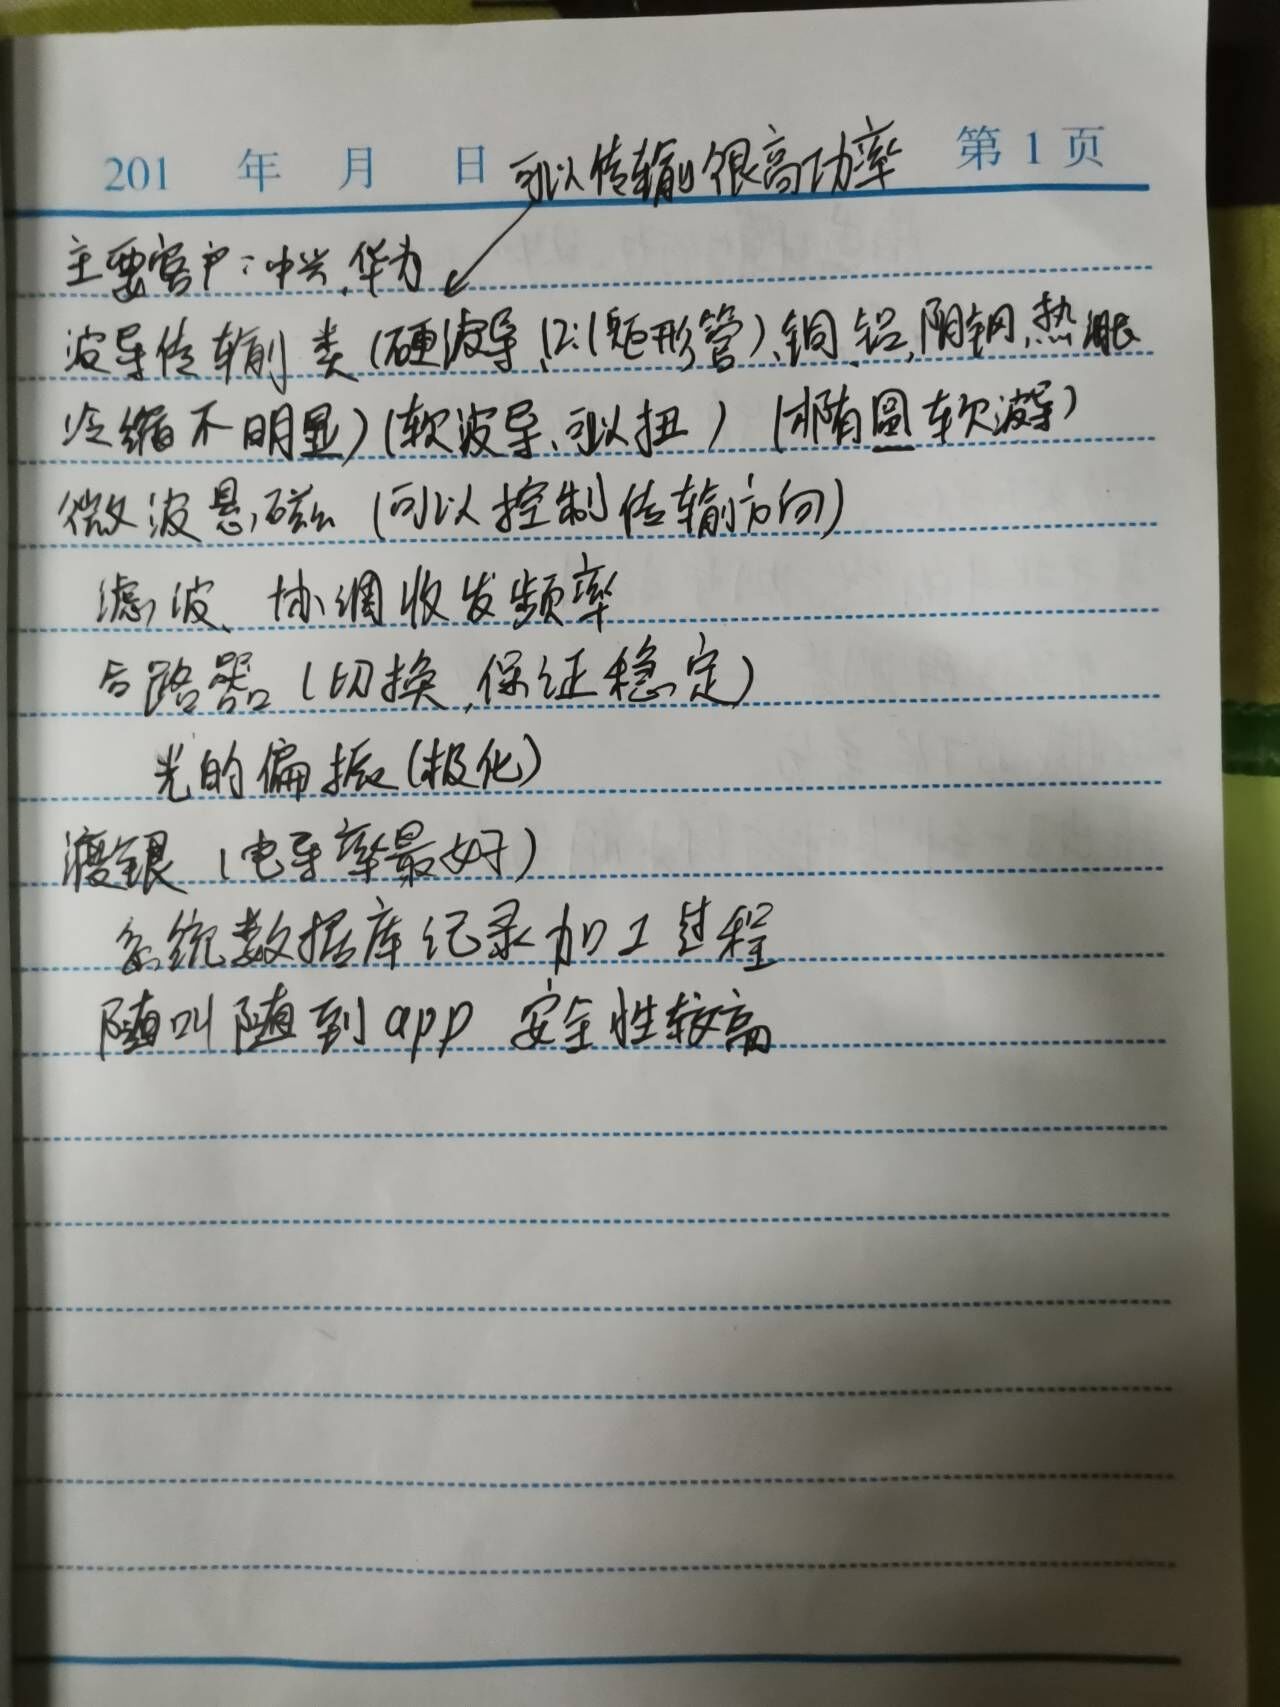 201 年 月 日 第1页
可以传输很高功率
主要客户:中兴、华为
波导传输类(硬波导、2:1矩形管)、铜、铝、阴钢,热胀
冷缩不明显)(软波导、可以扭)(椭圆软波导)
微波悬磁(可以控制传输方向)
滤波、协调收发频率
合路器(切换,保证稳定)
光的偏振(极化)
渡银(电导率最好)
系统数据库记录加工过程
随叫随到app 安全性较高